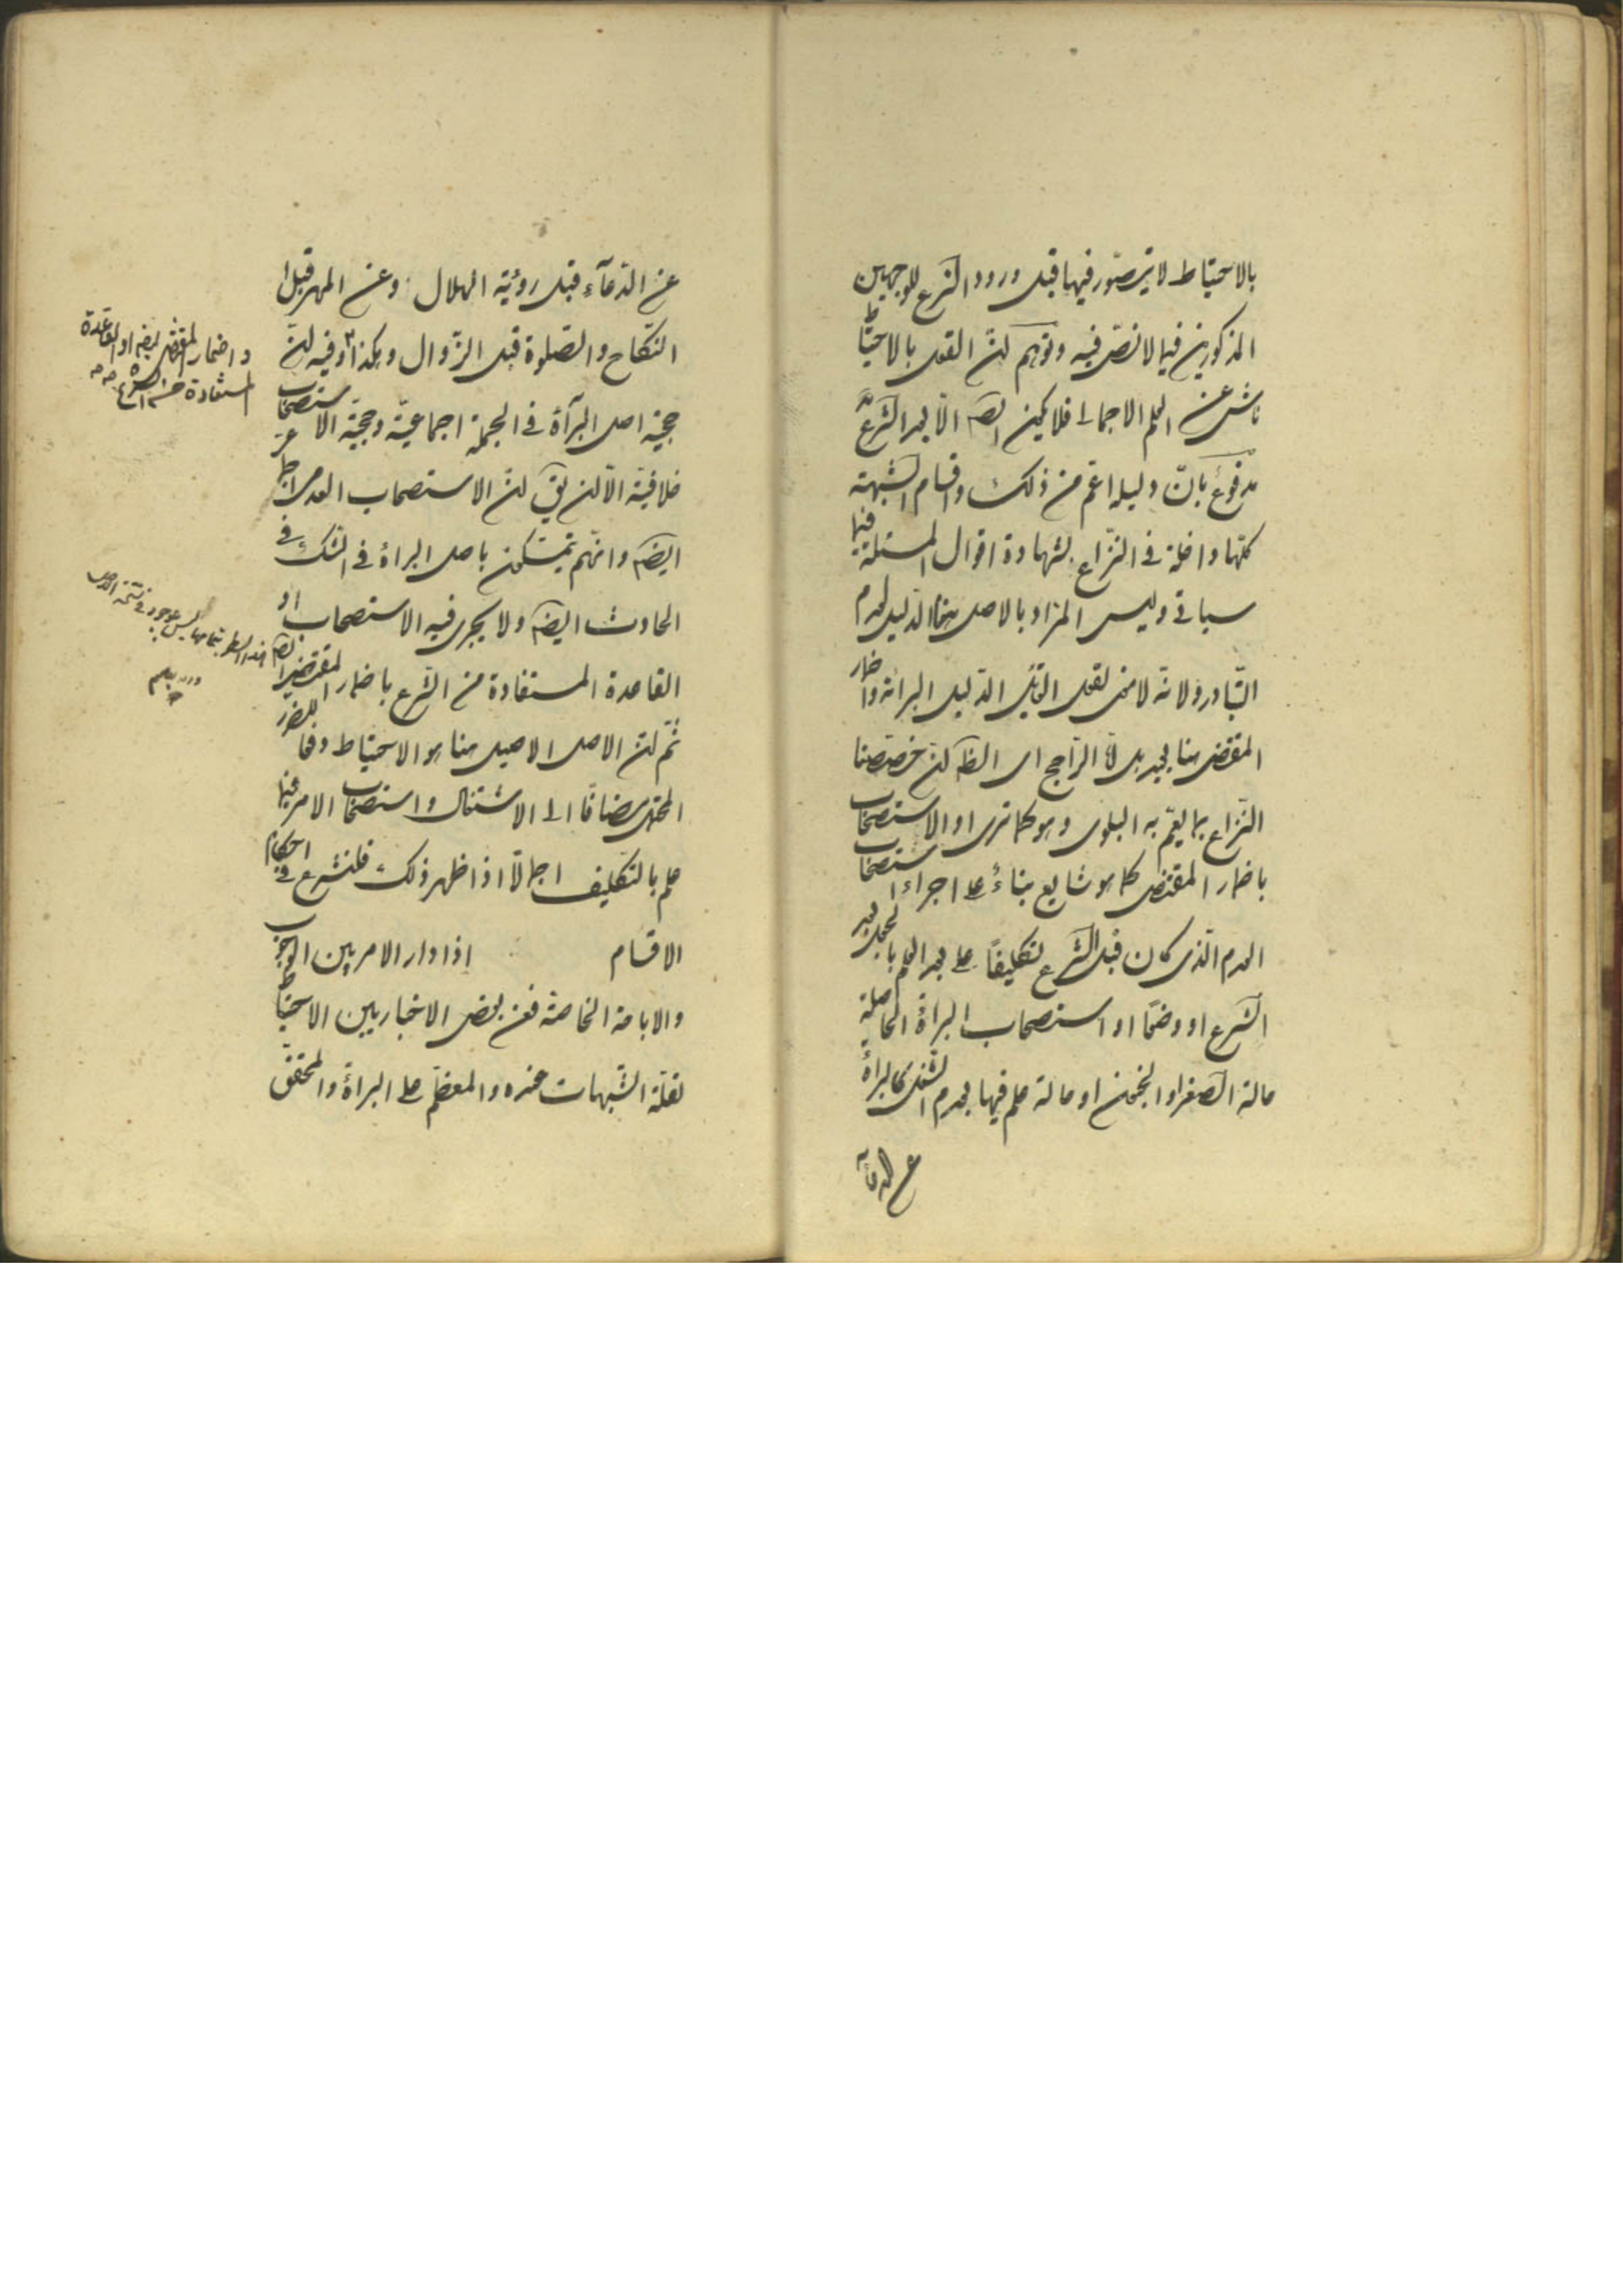 بالاحتياط لا يتصوّر فيها قبل ورود الشرع للوجهين
المذكورين فيما لا نصّ فيه وتوهم انّ القول بالاحتياط
ناش عن العلم الاجمالى فلا يكون ايضا الّا بعد الشرع
مدفوع بانّ دليله اعم من ذلك واقسام الشبهة
كلها داخلة فى النزاع بشهادة اقوال المسئلة فيما
سياتى وليس المراد بالاصل هنا الدليل لعدم
التبادر ولانه لا معنى لقول القائل الدليل البرائة واضمار
المقتضى هنا بعيد بل الراجح اى الظ ان خصصنا
النزاع بما يعم به البلوى وهو كما ترى او الاستصحاب
باضمار المقتضى كما هو شايع بناءً على اجراء استصحاب
العدم الذى كان قبل الشرع تكليفاً على بعد العلم بالجعل بعد
الشرع او وضعا او استصحاب البراءة الحاصلة
حالة الصغر او الجنون او حالة علم فيها بعدم الشغل كالبراءة
عن الدعاء
عن الدعآء قبل رؤية الهلال وعن المهر قبل
النكاح والصلوة قبل الزوال وهكذا وفيه انّ
حجية اصل البرآءة فى الجملة اجماعيّة وحجيّة الاستصحاب
خلافيّة الّا ان يق انّ الاستصحاب العدمى
ايضا وانهم يتمسّكون باصل البراءة فى الشك فى
الحادث ايضا ولا يجرى فيه الاستصحاب او
القاعدة المستفادة من الشرع باضمار المقتضى ايضا
ثم انّ الاصل الاصيل هنا هو الاحتياط دفعا للضرر
المحتمل مضافًا الى الاشتغال واستصحاب الامر فيما
علم بالتكليف اجمالًا اذا ظهر ذلك فلنشرع فى احكام
الاقسام اذا دار الامر بين الوجوب
والاباحة الخاصة فعن بعض الاخباريين الاحتياط
لقلّة الشبهات عنده والمعظم على البراءة والمحقق
واضمار المقتضى ايضا او القاعدة
المستفادة من الشرع
هذا السطر بتمامها ليس بموجود فى نسخة الاصل